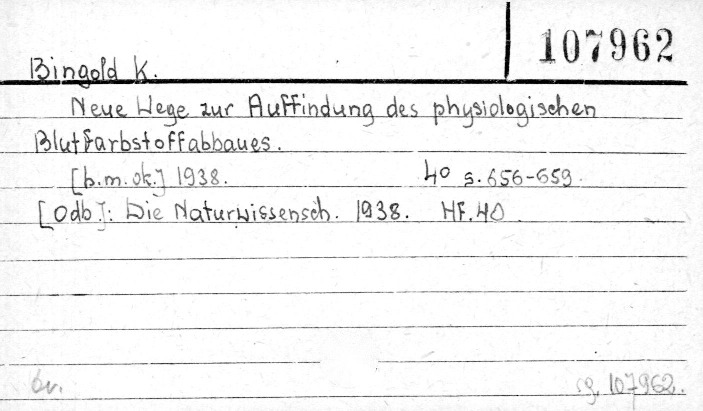 107962
Bingold K.
Neue Wege zur Auffindung des physiologischen
Blutfarbstoffabbaues.
[b.m.ok.] 1938. 4o s.656-659.
[Odb]: Die Naturwissensch. 1938. Hf.40
br. 107962.